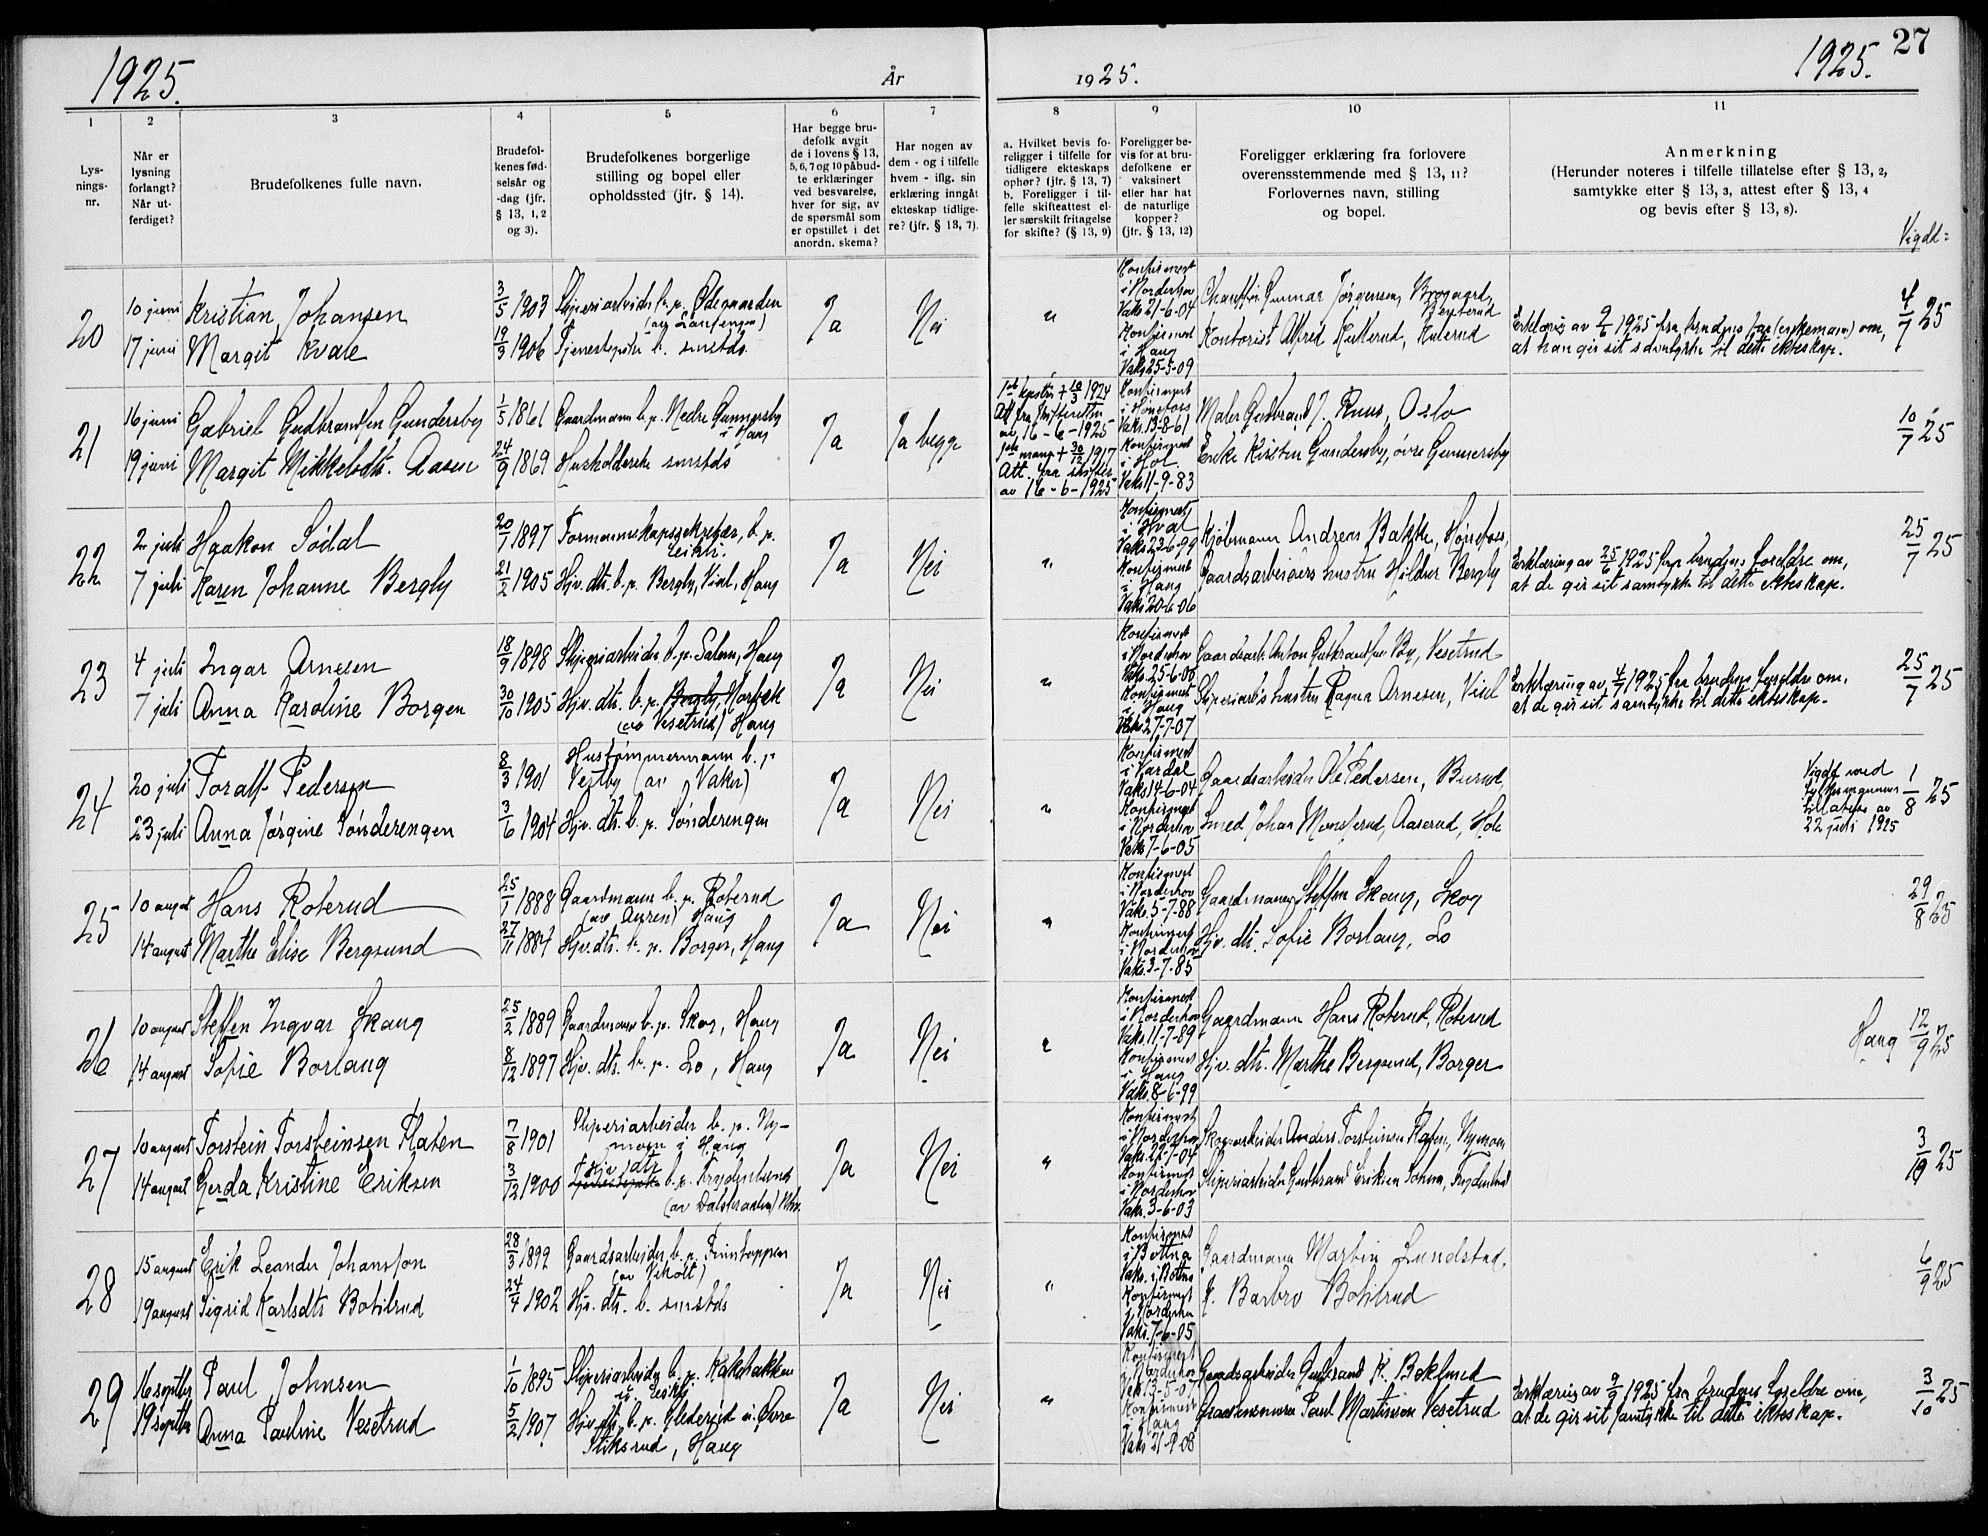 1925.
År
1925.
1925.
27
1
2
3
4
5
6
7
8
9
10
11
Lys-
nings-
nr.
Når er
lysning
forlangt?
Når ut-
ferdiget?
Brudefolkenes fulle navn.
Brudefol-
kenes fød-
selsår og
-dag (jfr.
§ 13, 1, 2
og 3).
Brudefolkenes borgerlige
stilling og bopel eller
opholdssted (jfr. § 14).
Har begge bru-
defolk avgit
de i lovens § 13,
5, 6, 7 og 10 påbud-
te erklæringer
ved besvarelse,
hver for sig, av
de spørsmål som
er opstillet i det
anordn. skema?
Har nogen av
dem - og i tilfelle
hvem - iflg. sin
erklæring inngåt
ekteskap tidlige-
re? (jfr. § 13, 7).
a. Hvilket bevis fo-
religger i tilfelle for
tidligere ekteskaps
ophør? (jfr. § 13, 7)
b. Foreligger i til-
felle skifteattest el-
ler særskilt fritagelse
for skifte? (§ 13, 9)
Foreligger be-
vis for at bru-
defolkene er
vaksinert
eller har hat
de naturlige
kopper?
(jfr. § 13, 12)
Foreligger erklæring fra forlovere
overensstemmende med § 13, 11?
Forlovernes navn, stilling
og bopel.
Anmerkning
(Herunder noteres i tilfelle tillatelse efter § 13, 2,
samtykke etter § 13, 3, attest efter § 13, 4
og bevis efter § 13, 8).
Vigdd:
20
10 juni
17 juni
Kristian Johansen
Margit Kvale
3/5 1903
19/3 1906
Sliperiarbeider b. p. Ødegaarden
Tjenestepike b. smstds.
Ja
Nei
"
Konfirmert
i Norderhov
Vaks 21-6-04
Konfirmert
i Haug
Vaks 25-5-09
Chauffør Gunnar Jørgensen,
Kontorist Alfred
Erklæring av 9/6 1925 fra brudens far (enkemann) om,
at han gir sit samtykke til dette ekteskap.
4/7 25
21
16 juni
19 juni
Gabriel Gudbrandsen Gundersby
Margit Mikkelsdtr. Aasen
1/5 1861
24/9 1869
Gaardmann b. p. Nedre Gunnersby
i Haug
Husholderske smstds
Ja
Ja begge
1ste hustru + 10/3 1924
Att fra skifteretten
av 16-6-1925
1ste mand + 30/12 1917
Att. fra skifter.
av 16-6-1925
Konfirmert
i Hønefoss
Vaks. 13-8-61
Konfirmert
i Hol.
Vaks 11-9-83
Maler Gudbrand J. Ruus, Oslo
Enke Kristen Gundersby, øvre Gunnersby
10/7 25
22
2 juli
7 juli
Haakon Södal
Karen Johanne Bergly
20/7 1897
21/2 1905
Formannskapssekretær, b. p.
Hjv. dtr. b. p. Bergly, Viul, Haug
Ja
Nei
"
Konfirmert
i Hval
Vaks 23-6-99
Konfirmert
i Haug
Vaks 20-6-06
Kjøbmann Andreas Bakke, Hønefoss,
Gaardsarbeiders hustru Hildur Bergly
Erklæring av 25/6 1925 fra brudens foreldre om,
at de gir sit samtykke til dette ekteskap.
25/7 25
23
4 juli
7 juli
Ingar Arnesen
Anna Karoline Borgen
18/9 1898
30/10 1905
Sliperiarbeider b. p. Salem, Haug
Hjv. dtr. b. p. Bergly, Harbæk
(av Vesetrud) Haug
Ja
Nei
"
Konfirmert
i Norderhov
Vaks. 25-6-00
Konfirmert
i Haug
Vaks 27-7-07
Gaardsarb. Anton Gulbrandsen By, Vesetrud
Sliperiarb's hustru Ragna Arnesen, Viul
Erklæring av 4/7 1925 fra brudens foreldre om,
at de gir sit samtykke til dette ekteskap.
25/7 25
24
20 juli
23 juli
Toralf Pedersen
Anna Jørgine Sønderengen
8/3 1901
3/6 1904
Hustømmermann b. p
Vestby (av Vaker)
Hjv. dtr. b. p. Sønderengen
Ja
Nei
"
Konfirmert
i Vardal
Vaks 14-6-04
Konfirmert
i Norderhov
Vaks 7-6-05
Gaardsarbeider Ole Pedersen,
Smed Johan Monserud, Aaserud, Hole
Vigdd med
fylkesmannens
tillatelse av
22 juli 1925
1/8 25
25
10 august
14 august
Hans Roterud
Marthe Elise Bergsund
25/1 1888
27/11 1884
Gaardmann b. p. Roterud
Haug
Hjv. dtr. b. p. Borger, Haug
Ja
Nei
"
Konfirmert
i Norderhov
Vaks. 5-7-88
Konfirmert
i Norderhov
Vaks. 3-7-85
Gaardmann Steffen Skaug, Skog
Hjv. dtr. Sofie Borlaug, Lo
29/8 25
26
10 august
14 august
Steffen Ingvar Skaug
Sofie Borlaug
25/2 1889
8/12 1897
Gaardmann b. p. Skog, Haug
Hjv. dtr. b. p. Lo, Haug
Ja
Nei
"
Konfirmert
i Norderhov
Vaks. 11-7-89
Konfirmert
i Haug
Vaks. 8-6-99
Gaardmann Hans Roterud, Roterud
Hjv. dtr. Marthe Bergsund, Borger
Haug 12/9 25
27
10 august
14 august
Torstein Torsteinsen Flaten
Gerda Kristine Eriksen
7/8 1901
3/12 1900
Sliperiarbeider b. p. Ny-
moen i Haug
Hjv. dtr.
Tjenestepike b. p. Frydenlund
Ja
Nei
"
Konfirmert
i Norderhov
Vaks. 22-7-04
Konfirmert
i Norderhov
Vaks. 3-6-03
Skogsarbeider Anders Torsteinsen Flaten, Nymoen
Sliperiarbeider Gudbrand Eriksen Frydenlund
3/10 25
28
15 august
19 august
Erik Leander Johansson
Sigrid Karlsdtr Botilrud
28/3 1899
24/4 1902
Gaardsarbeider b. p. Finntoppen
Hjv. dtr. b. smstds
Ja
Nei
"
Konfirmert
i Bottna
Vaks. i Bottna
Konfirmert
i Norderhov
Vaks. 7-6-05
Gaardmann Martin Lundstad,
Barbro Botilrud
6/9 25
29
16 septbr
19 septbr
Paul Johnsen
Anna Pauline Vesetrud
1/10 1895
5/2 1907
Sliperiarbeider b. p. Kakebakken
Hjv. dtr. b. p. Glederud u. Øvre
Stiksrud, Haug
Ja
Nei
"
Konfirmert
i Norderhov
Konfirmert
i Haug
Vaks 21-9-08
Gaardsarbeider Gudbrand K. Beklund
Paul Martinsen Vesetrud
Erklæring av 9/9 1925 fra brudens foreldre om,
at de gir sit samtykke til dette ekteskap.
3/10 25